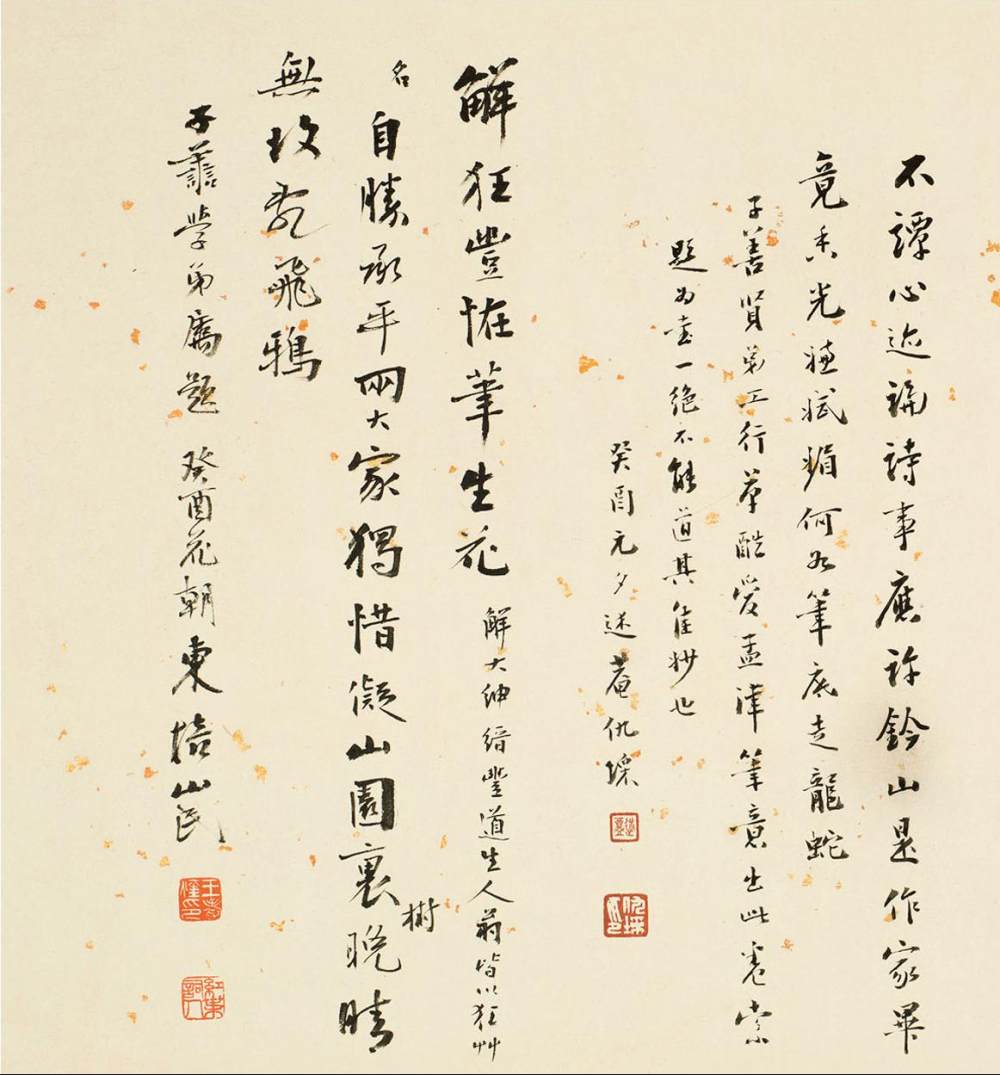 不譚心迹論詩事應許鈐山是作家畢
竟香光嫌斌媚何如筆底走龍蛇
子善賢弟工行草酷愛孟津筆意出此卷索
題為書一絕不能道其佳妙也
癸酉元夕述菴仇埰
解狂豈恠筆生花 解大紳縉豐道生人翁皆以狂艸
名 自勝承平兩大家獨惜儗山園裏樹晚晴
無枝亂飛鴉
子蕭學弟屬題 癸酉花朝東培山民